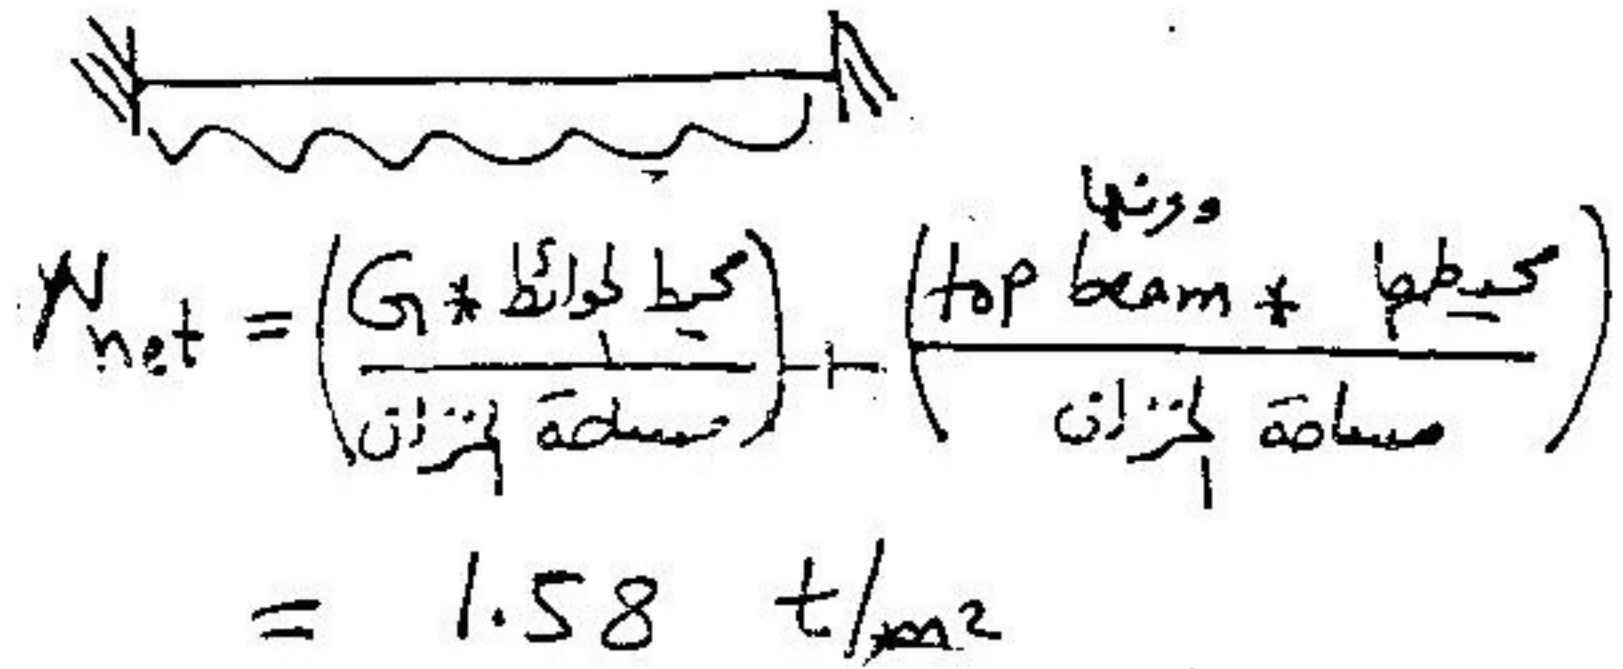 وزنها
W net = (G * محيط الحوائط / مساحة الخزان) + (top beam * محيطها / مساحة الخزان)
= 1.58 t/m²